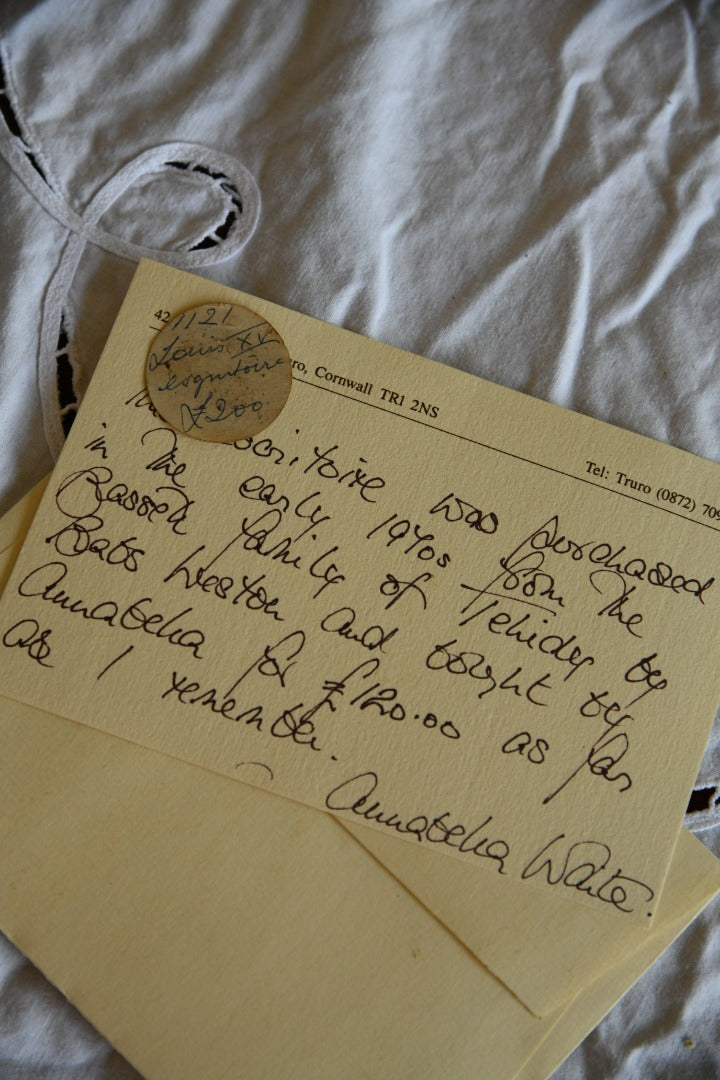 1121
Louis XV
esqnitoire
£200.
42
ro, Cornwall TR1 2NS
Tel: Truro (0872) 709
scritoire was purchased
in The early 1970s from The
Bassett family of Tehidy by
Bats Weston and bought by
Annabella for £120.00 as far
as I remember.
Annabella Waite.